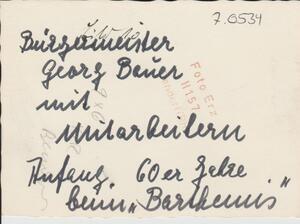 7.0534
Bürgermeister
Georg Bauer
mit
Mitarbeitern
Anfang 60er Jahre
beim „Barthemis"
Foto Erz